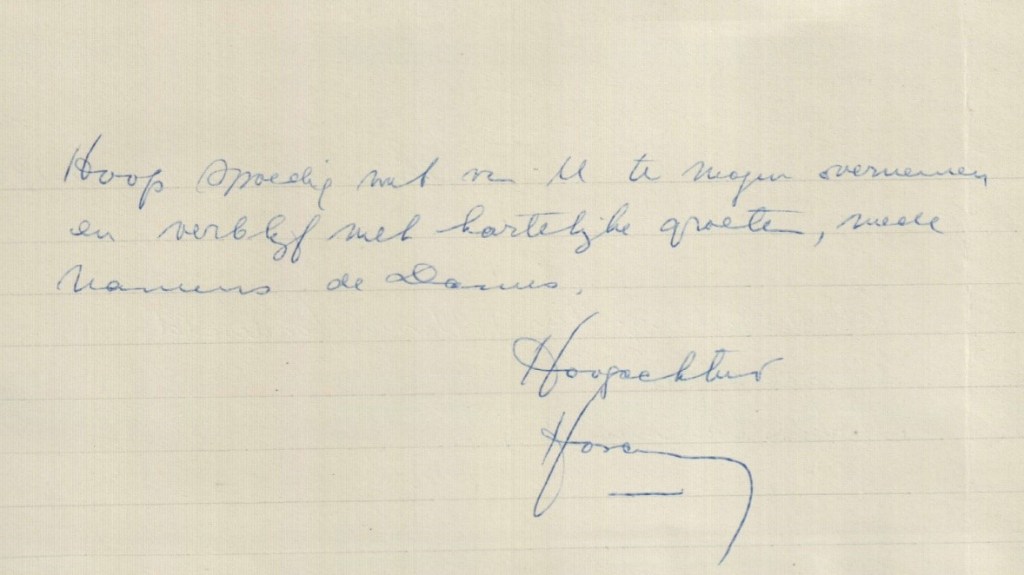 Hoop spoedig wat van U te mogen overnemen
en verblijf met hartelijke groeten, mede
namens de Dames.
Hoogachtend